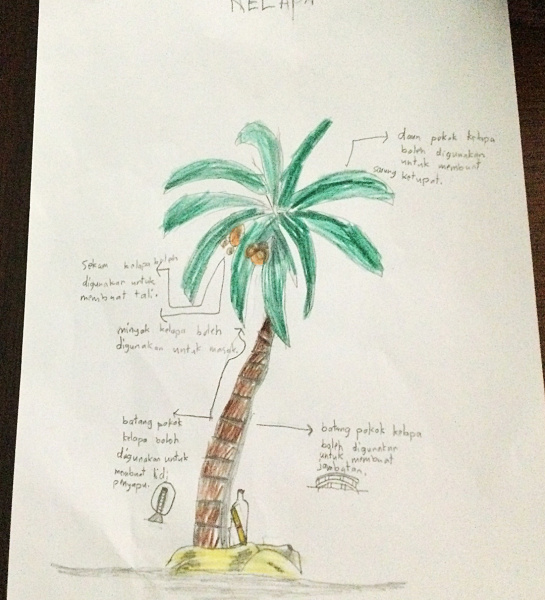 KELAPA
daun pokok kelapa
boleh digunakan
untuk membuat
sarung
ketupat.
Sekam kelapa boleh
digunakan untuk
membuat tali.
minyak kelapa boleh
digunakan untuk masak.
batang pokok
kelapa boleh
digunakan untuk
membuat lidi
penyapu.
batang pokok kelapa
boleh digunakan
untuk membuat
jambatan.